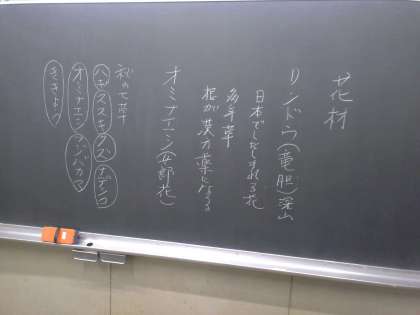 花材
リンドウ(竜胆)深山
日本でしたしまれる花
多年草
根が漢方薬になる
オミナエシ(女郎花)
秋の七草
ハギ ススキ クズ ナデシコ
オミナエシ フジバカマ
ききょう